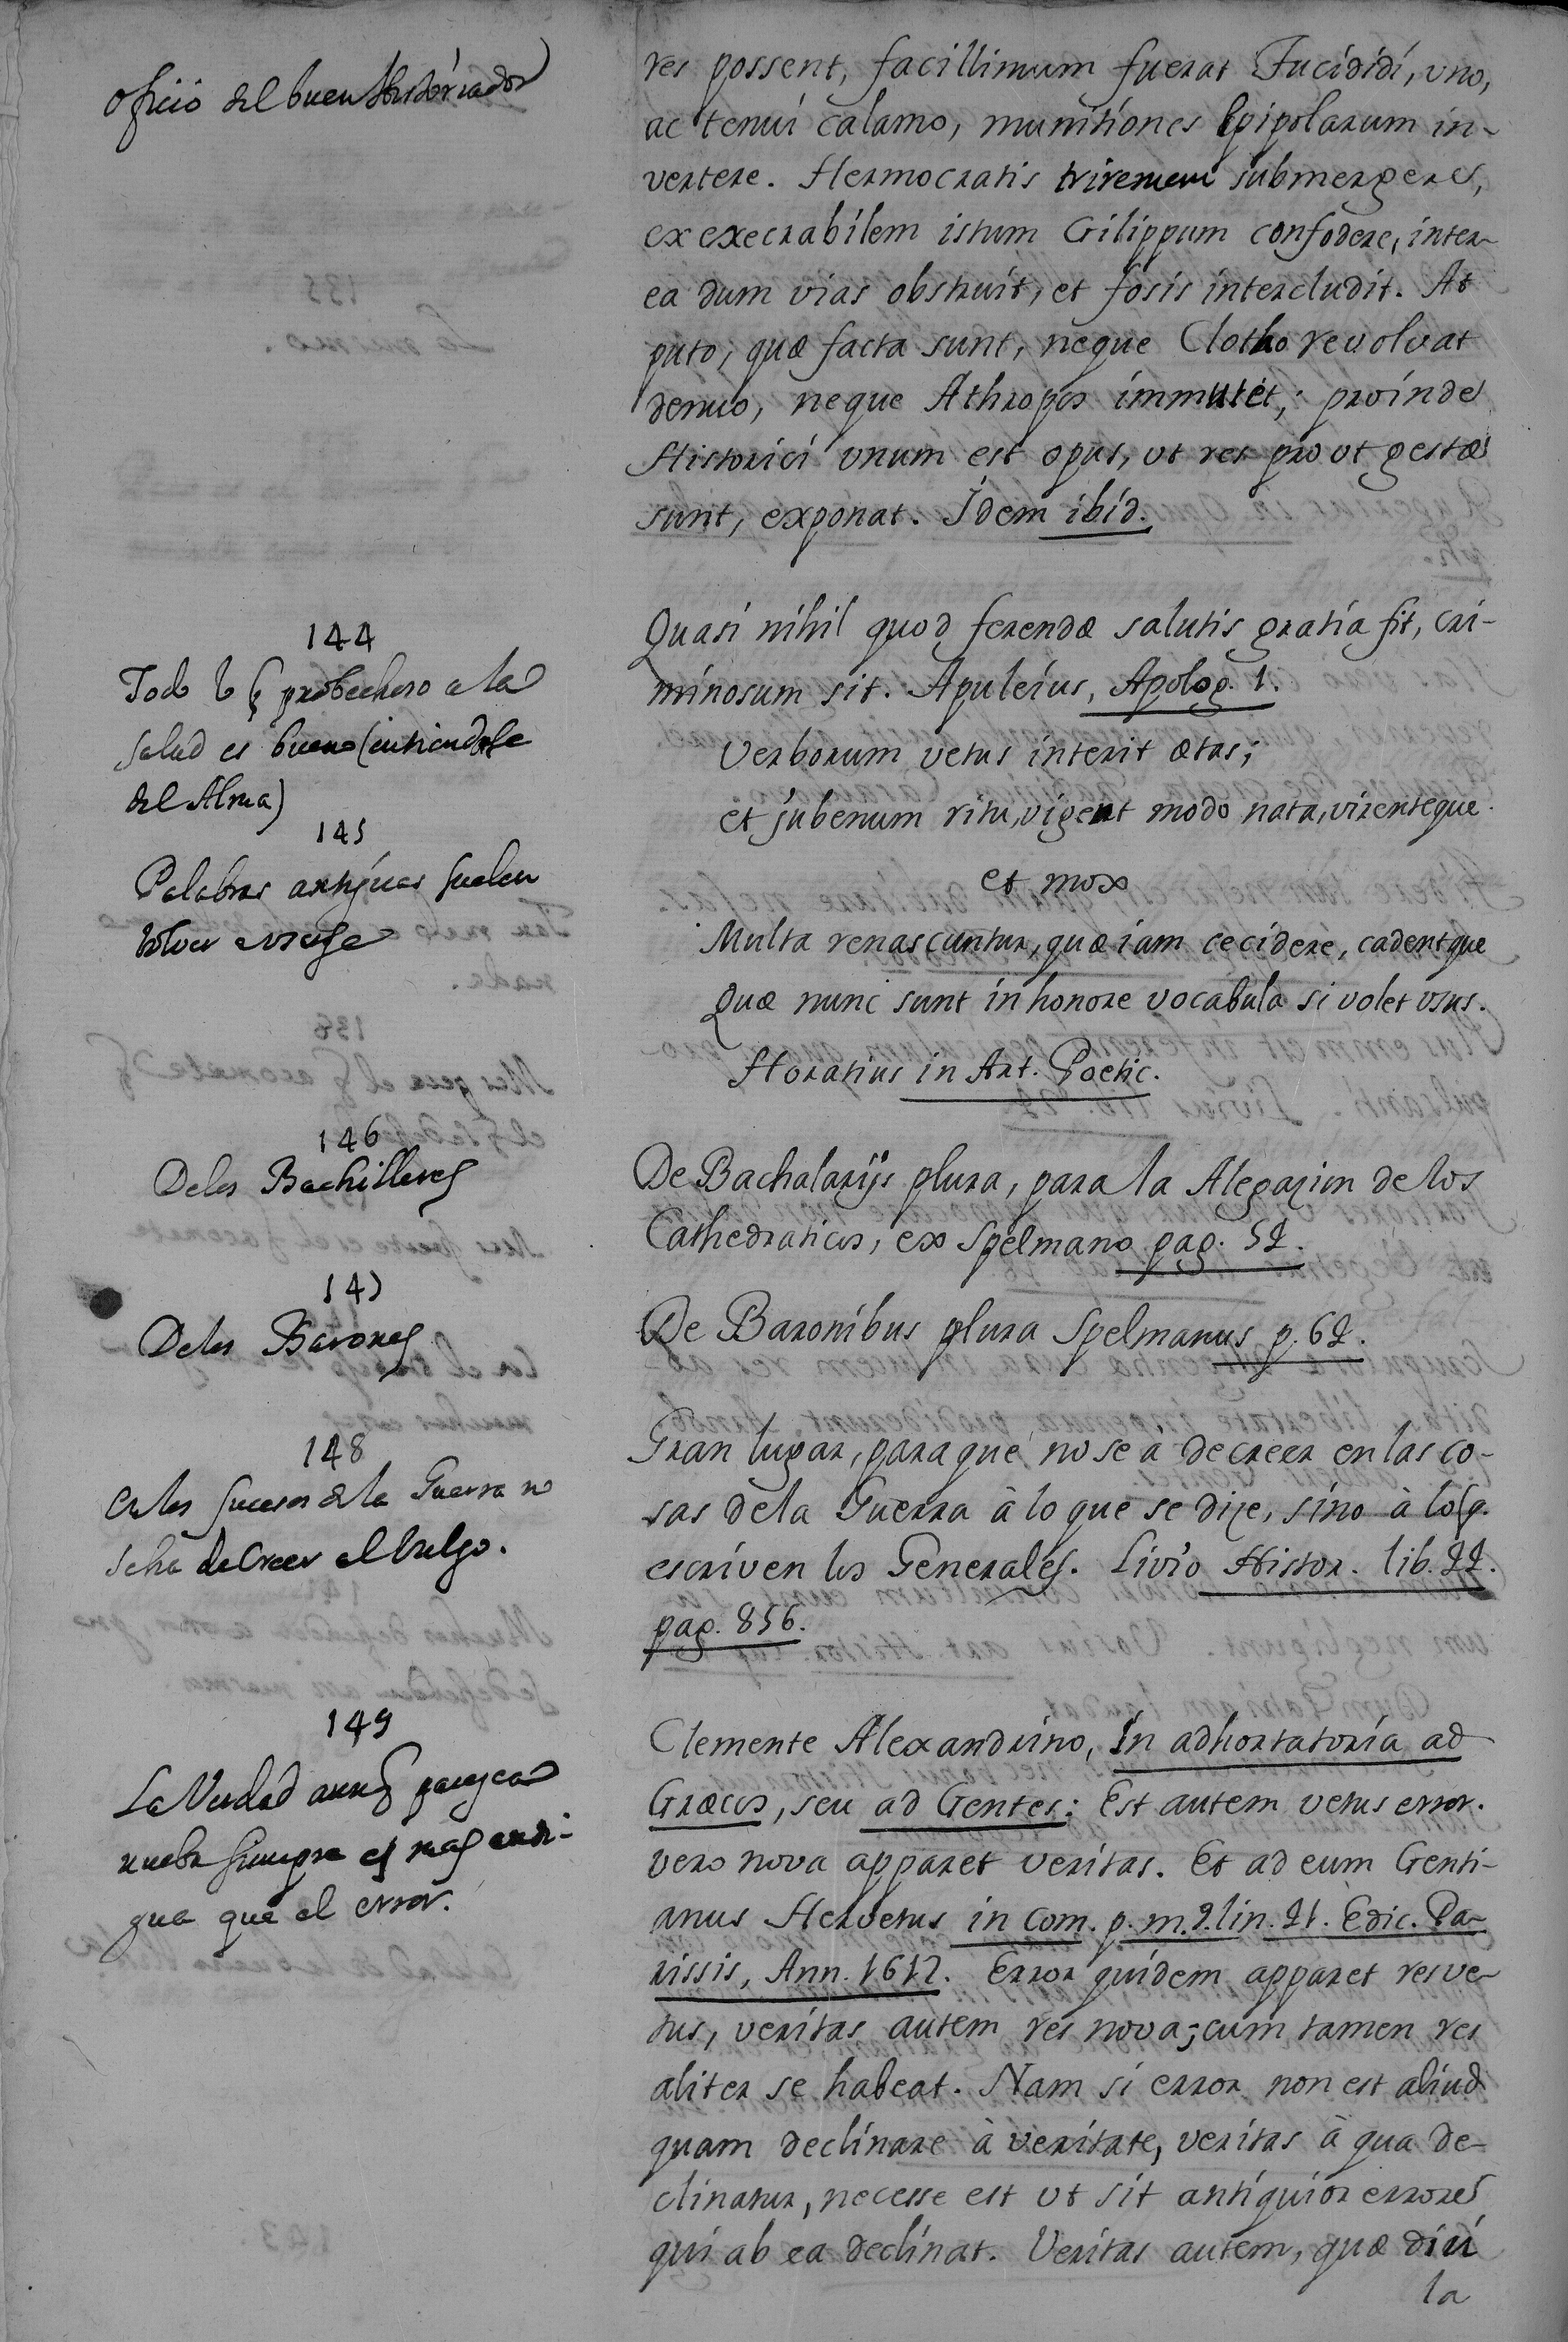 oficio del buen Historiador
res possent, facillimum fuerat Tucididi, vno,
ac tenui calamo, munitiones Epipolarum in-
vertere. Hermocratis triremem submergere,
ex execrabilem istum Gilippum confodere, inter-
ea dum vias obstruit, et fosis intercludit. At
puto, quæ facta sunt, neque Clotho revolvat
denuo, neque Athropos immutet; proinde
Historici vnum est opus, vt res pro vt gestæ
sunt, exponat. Idem ibid.
144
Todo lo q̃ probechoso a la
salud es bueno (entiendase
del Alma)
Quasi nihil quod ferendæ salutis gratia fit, cri-
minosum sit. Apuleius, Apolog. 1.
145
Palabras antiguas suelen
bolver a vsarse
Verborum vetus interit ætas;
et jubenum ritu, vigent modo nata, virentque.
et mox
Multa renascuntur, quæ iam cecidere, cadentque
Quæ nunc sunt in honore vocabula si volet vsus.
Horatius in Art. Poetic.
146
Delos Bachilleres
De Bachalarijs plura, para la Alegazion de los
Cathedraticos, ex Spelmano pag. 52.
147
Delos Barones
De Baronibus plura Spelmanus p. 62.
148
En los sucesos de la Guerra no
se ha de Creer al bulgo.
Gran lugar, para que no se à de creer en las co-
sas de la Guerra à lo que se dize, sino à lo q.
escriven los Generales. Livio Histor. lib. 22.
pag. 856.
149
La Verdad aunq̃ parezca
nueba siempre es mas anti-
gua que el error.
Clemente Alexandrino, In adhortatoria ad
Græcos, seu ad Gentes: Est autem vetus error.
vero nova apparet veritas. Et ad eum Genti-
anus Hervetus in Com. p. m. 2. lin. 21. Edic. Pa-
rissis, Ann. 1612. Error quidem apparet res ve-
tus, veritas autem res nova; cum tamen res
aliter se habeat. Nam si error non est aliud
quam declinare à veritate, veritas à qua de-
clinatur, necesse est vt sit antiquior errore
qui ab ea declinat. Veritas autem, quæ diu
la